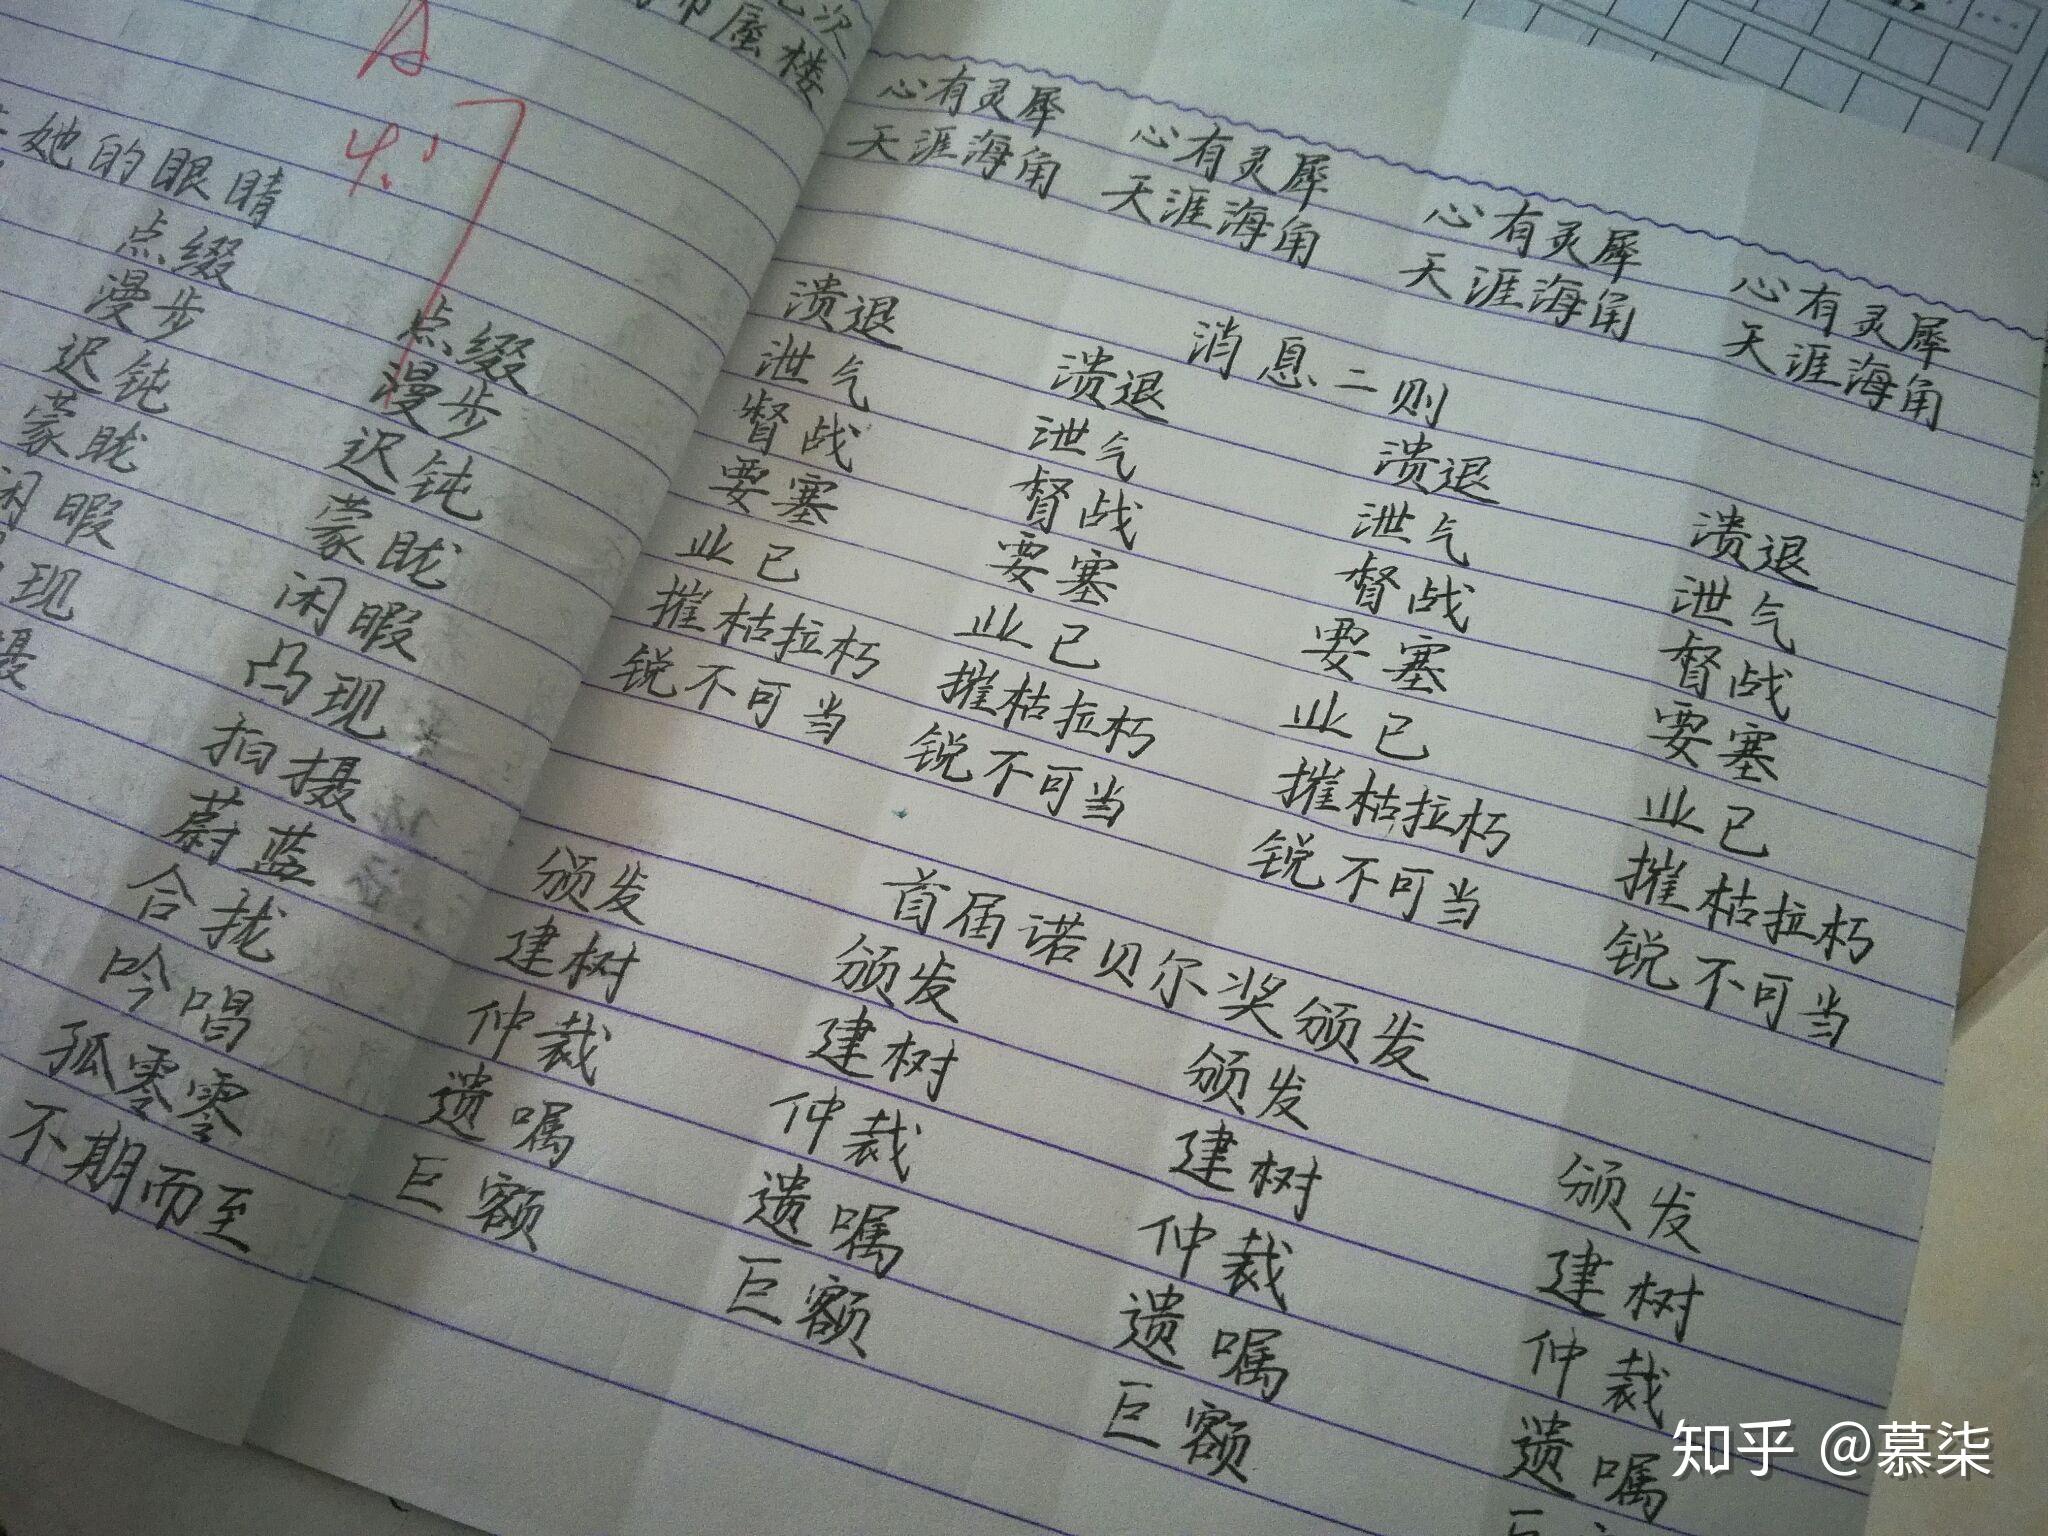 次
市蜃楼
A
她的眼睛
点缀 点缀
漫步 漫步
迟钝 迟钝
蒙眬 蒙眬
闲暇 闲暇
现 凸现
摄 拍摄
蔚蓝
合拢
吟唱
孤零零
不期而至
心有灵犀 心有灵犀 心有灵犀 心有灵犀
天涯海角 天涯海角 天涯海角 天涯海角
消息二则
溃退 溃退 溃退 溃退
泄气 泄气 泄气 泄气
督战 督战 督战 督战
要塞 要塞 要塞 要塞
业已 业已 业已 业已
摧枯拉朽 摧枯拉朽 摧枯拉朽 摧枯拉朽
锐不可当 锐不可当 锐不可当 锐不可当
首届诺贝尔奖颁发
颁发 颁发 颁发 颁发
建树 建树 建树 建树
仲裁 仲裁 仲裁 仲裁
遗嘱 遗嘱 遗嘱 遗嘱
巨额 巨额 巨额
知乎 @慕柒